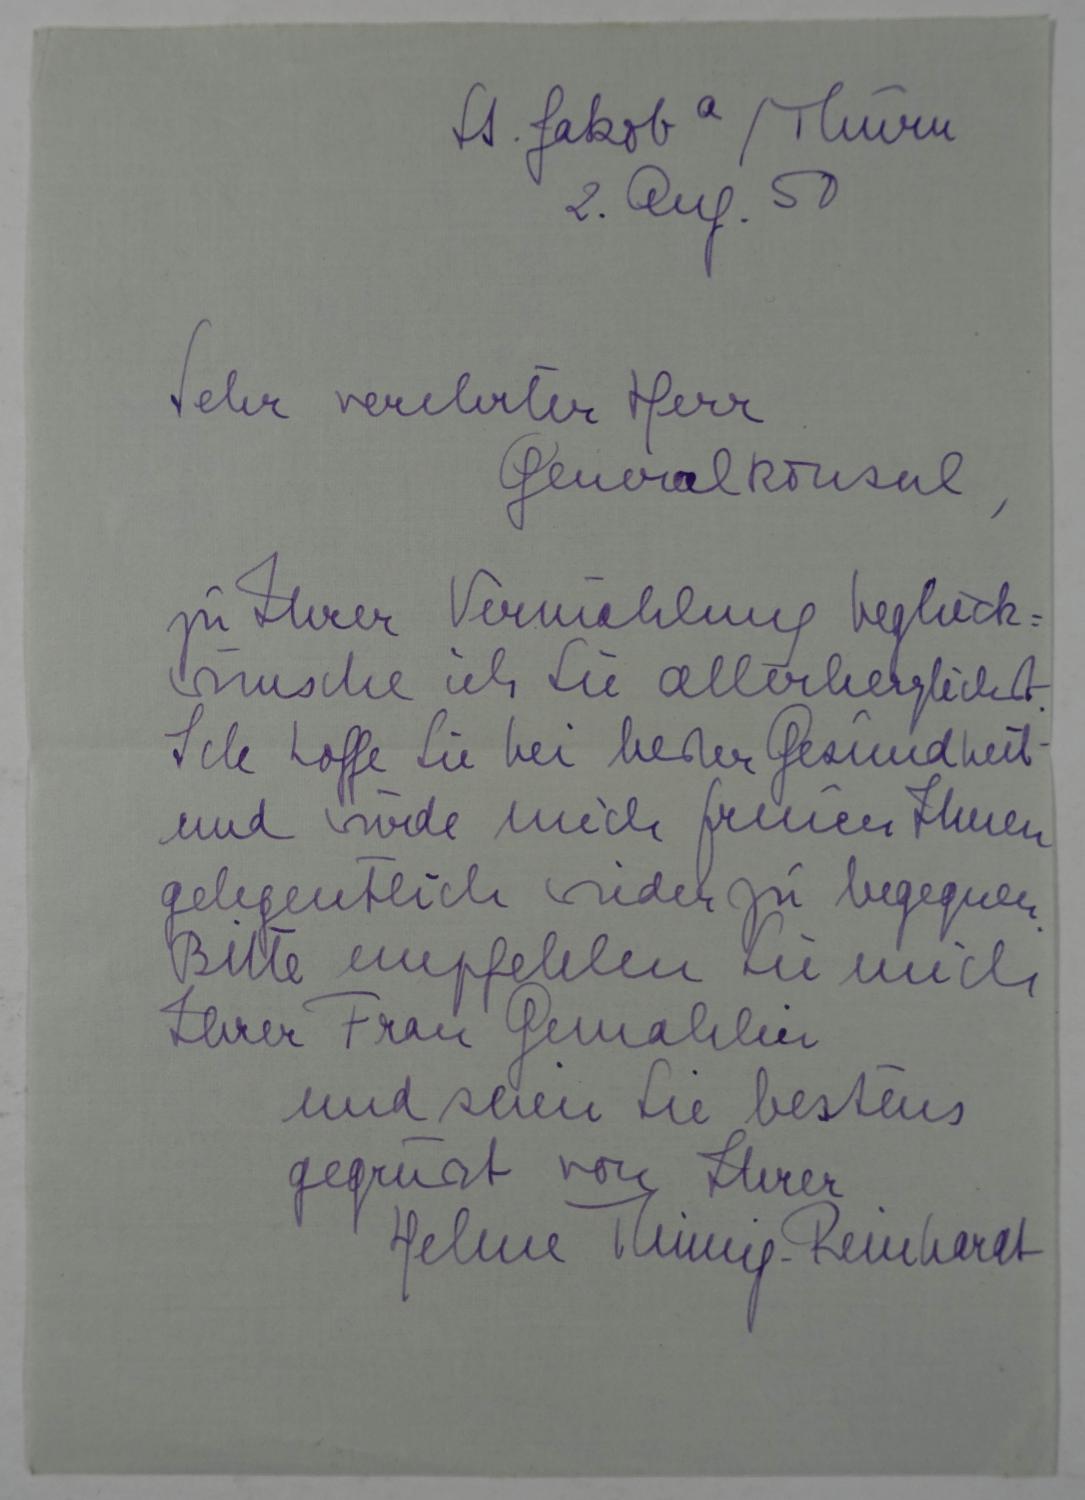 St. Jakob a/Thurn
2. Aug. 50
Sehr verehrter Herr
Generalkonsul,
zu Ihrer Vermählung beglück=
wünsche ich Sie allerherzlichst.
Ich hoffe Sie bei bester Gesundheit
und würde mich freuen Ihnen
gelegentlich wieder zu begegnen.
Bitte empfehlen Sie mich
Ihrer Frau Gemahlin
und seien Sie bestens
gegrüsst von Ihrer
Helene Thimig-Reinhardt